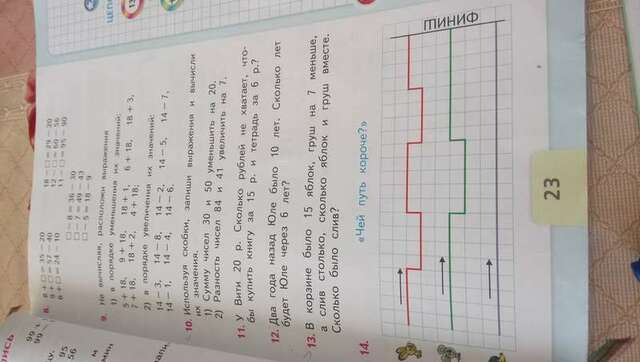 8. 8 + □ = 35 − 20
9 + □ = 57 − 40
6 + □ = 24 − 10
□ − 8 = 36 − 30
□ − 7 = 49 − 43
□ − 5 = 18 − 9
18 − □ = 29 − 20
12 − □ = 60 − 56
11 − □ = 95 − 90
9. Не вычисляя, расположи выражения
1) в порядке уменьшения их значений:
5 + 18, 9 + 18, 18 + 1, 6 + 18, 18 + 3,
7 + 18, 18 + 2, 4 + 18;
2) в порядке увеличения их значений:
14 − 3, 14 − 8, 14 − 2, 14 − 5, 14 − 7,
14 − 1, 14 − 4, 14 − 6.
10. Используя скобки, запиши выражения и вычисли
их значения.
1) Сумму чисел 30 и 50 уменьшить на 20.
2) Разность чисел 84 и 41 увеличить на 7.
11. У Вити 20 р. Сколько рублей не хватает, что-
бы купить книгу за 15 р. и тетрадь за 6 р.?
12. Два года назад Юле было 10 лет. Сколько лет
будет Юле через 6 лет?
13. В корзине было 15 яблок, груш на 7 меньше,
а слив столько, сколько яблок и груш вместе.
Сколько было слив?
14. «Чей путь короче?»
ФИНИШ
23